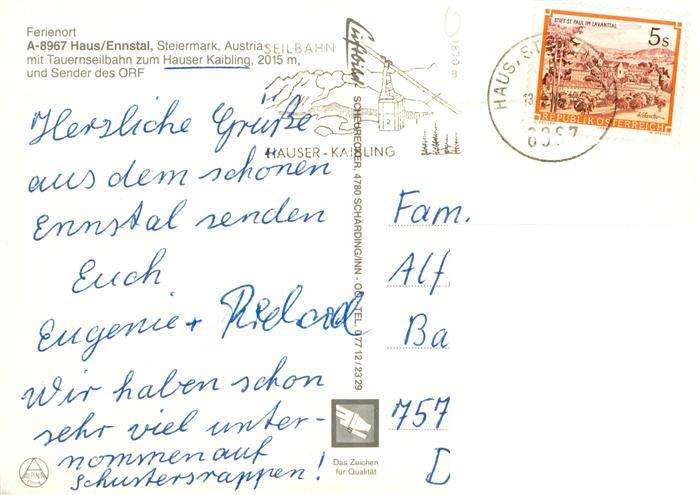 Ferienort
A-8967 Haus/Ennstal, Steiermark, Austria
mit Tauernseilbahn zum Hauser Kaibling, 2015 m,
und Sender des ORF
Herzliche Grüße
aus dem schönen
Ennstal senden
Euch
Eugenie + Richard
Wir haben schon
sehr viel unter-
nommen auf
Schustersrappen!
SEILBAHN
HAUSER-KAIBLING
Luftbild
SCHEURECKER, 4780 SCHÄRDING/INN - OÖ - TEL. 077 12 / 23 29
HAUS,
STIFT ST. PAUL IM LAVANTTAL
5 S
REPUBLIK ÖSTERREICH
Fam.
Alf
Ba
757
D
Das Zeichen
für Qualität